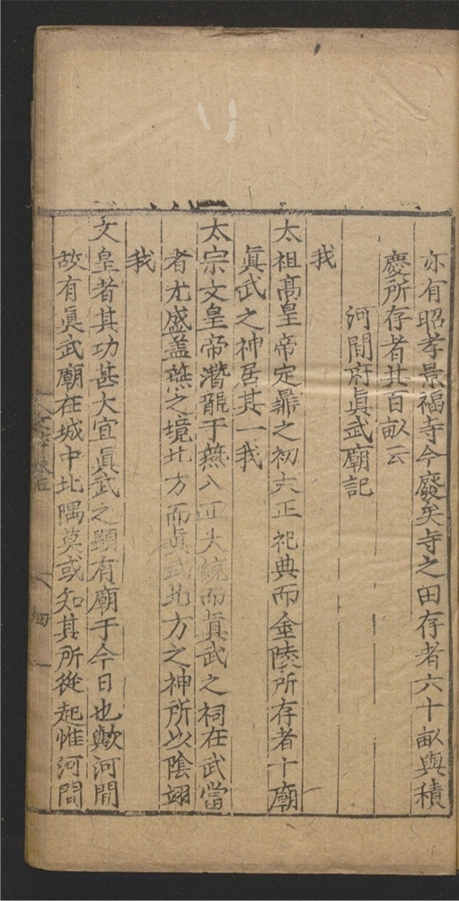 亦有昭孝景福寺今廢矣寺之田存者六十畝與積
慶所存者共百畝云
河間府眞武廟記
我
太祖高皇帝定鼎之初大正祀典而金陵所存者十廟
眞武之神居其一我
太宗文皇帝潛龍于燕入正大統而眞武之祠在武當
者尤盛盖燕之境北方而眞武北方之神所以陰翊
我
文皇者其功甚大宜眞武之顯有廟于今日也歟河間
故有眞武廟在城中北隅莫或知其所從起惟河間